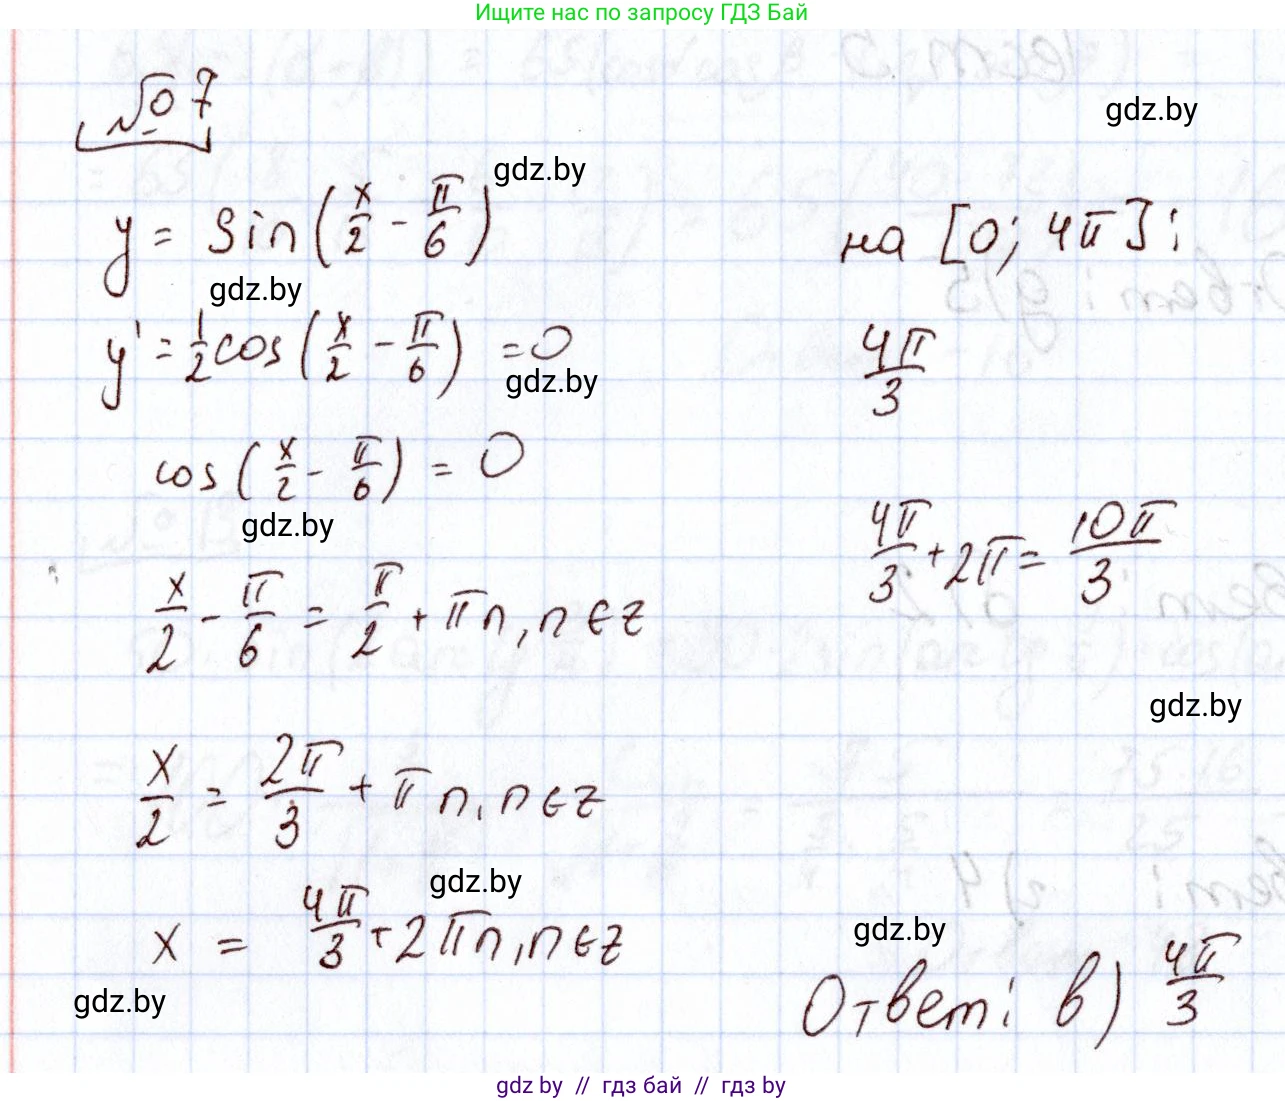 Ищите нас по запросу ГДЗ Бай
№ 7
gdz.by
gdz.by
y = sin(x/2 - π/6)
на [0; 4π]:
gdz.by
y' = 1/2 cos(x/2 - π/6) = 0
4π/3
gdz.by
cos(x/2 - π/6) = 0
gdz.by
4π/3 + 2π = 10π/3
x/2 - π/6 = π/2 + πn, n ∈ Z
gdz.by
x/2 = 2π/3 + πn, n ∈ Z
gdz.by
x = 4π/3 + 2πn, n ∈ Z
gdz.by
gdz.by
Ответ: в) 4π/3
gdz by // гдз бай // гдз by